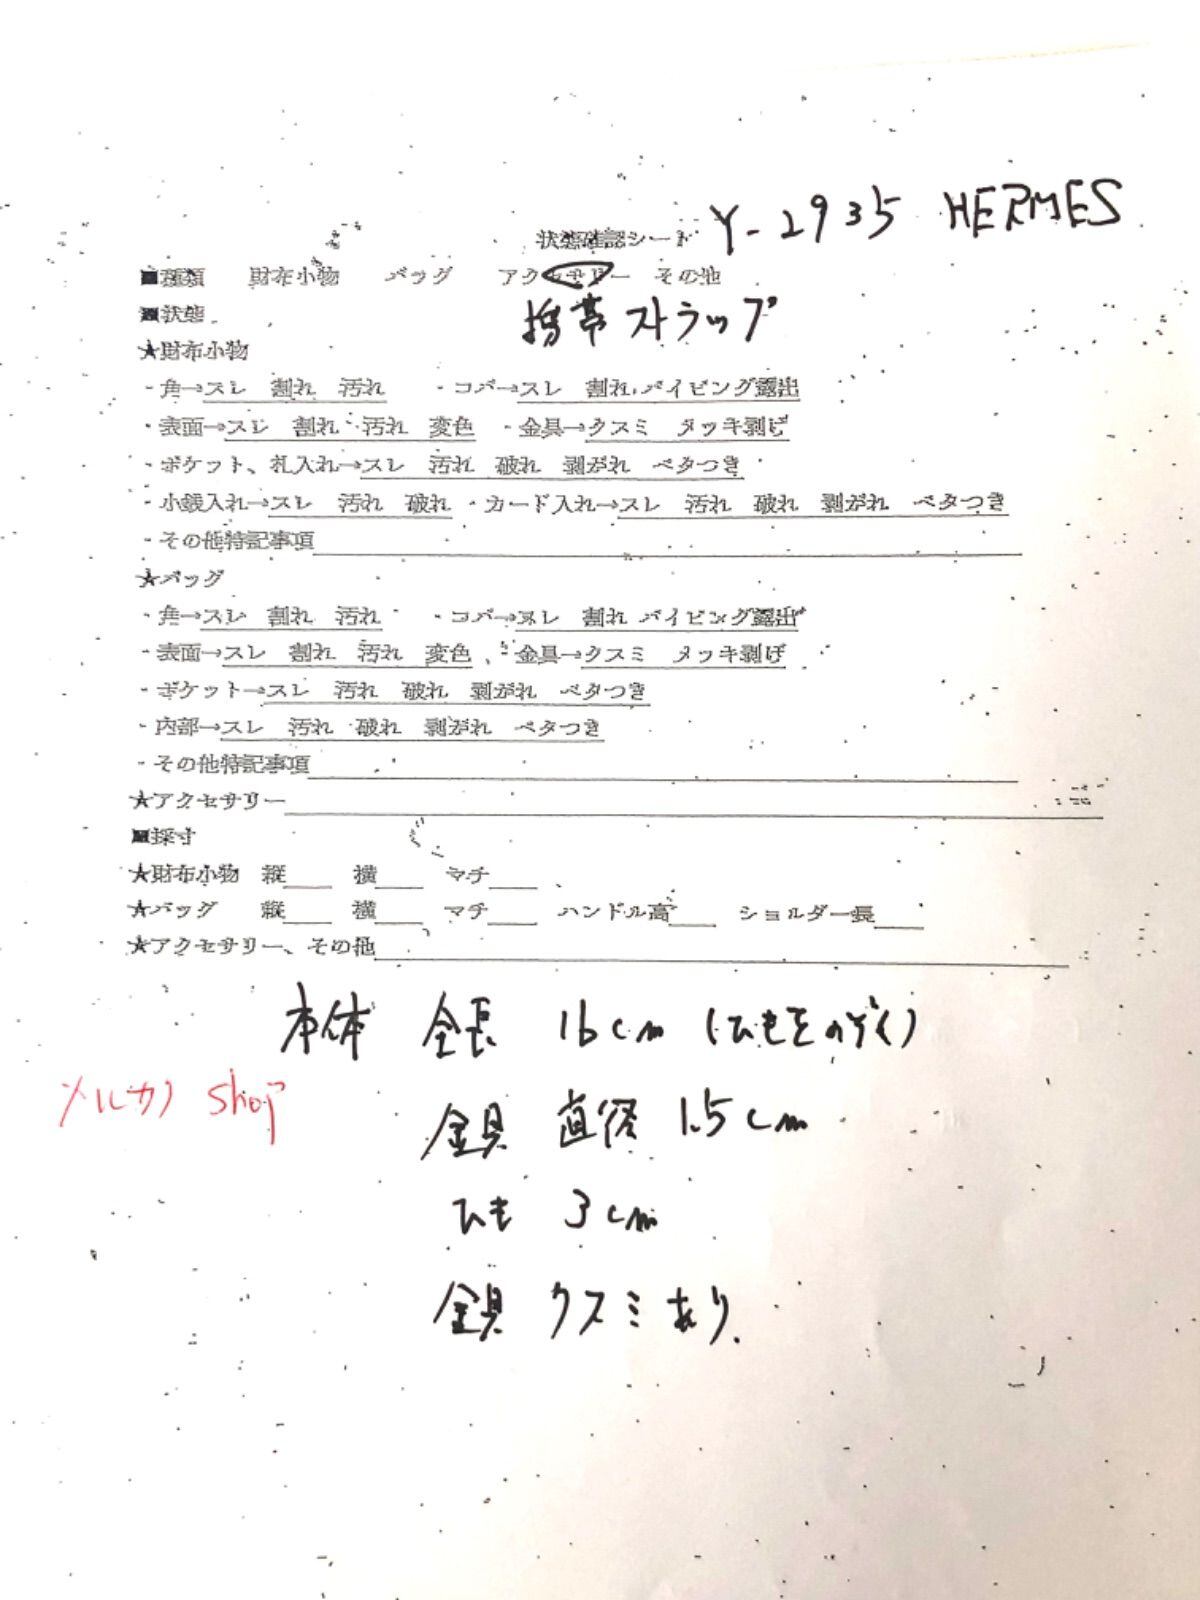 Y-2935 HERMES
状態確認シート
■種類 財布小物 バッグ アクセサリー その他
■状態 携帯ストラップ
★財布小物
・角→スレ 割れ 汚れ ・コバ→スレ 割れ パイピング露出
・表面→スレ 割れ 汚れ 変色 ・金具→クスミ メッキ剥げ
・ポケット、札入れ→スレ 汚れ 破れ 剥がれ ベタつき
・小銭入れ→スレ 汚れ 破れ ・カード入れ→スレ 汚れ 破れ 剥がれ ベタつき
・その他特記事項
★バッグ
・角→スレ 割れ 汚れ ・コバ→スレ 割れ パイピング露出
・表面→スレ 割れ 汚れ 変色 ・金具→クスミ メッキ剥げ
・ポケット→スレ 汚れ 破れ 剥がれ ベタつき
・内部→スレ 汚れ 破れ 剥がれ ベタつき
・その他特記事項
★アクセサリー
■採寸
★財布小物 縦 横 マチ
★バッグ 縦 横 マチ ハンドル高 ショルダー長
★アクセサリー、その他
本体 全長 16cm (ひもをのぞく)
メルカリ shop
金具 直径 1.5cm
ひも 3cm
金具 クスミあり.